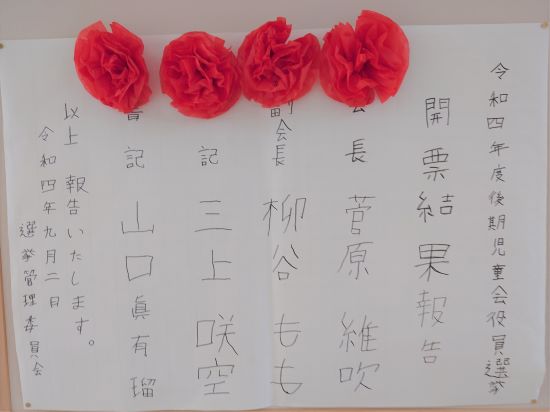 令和四年度後期児童会役員選挙
開票結果報告
会長 菅原 維吹
副会長 柳谷 もも
記 三上 咲空
書記 山口 眞有瑠
以上 報告いたします。
令和四年九月二日
選挙管理委員会